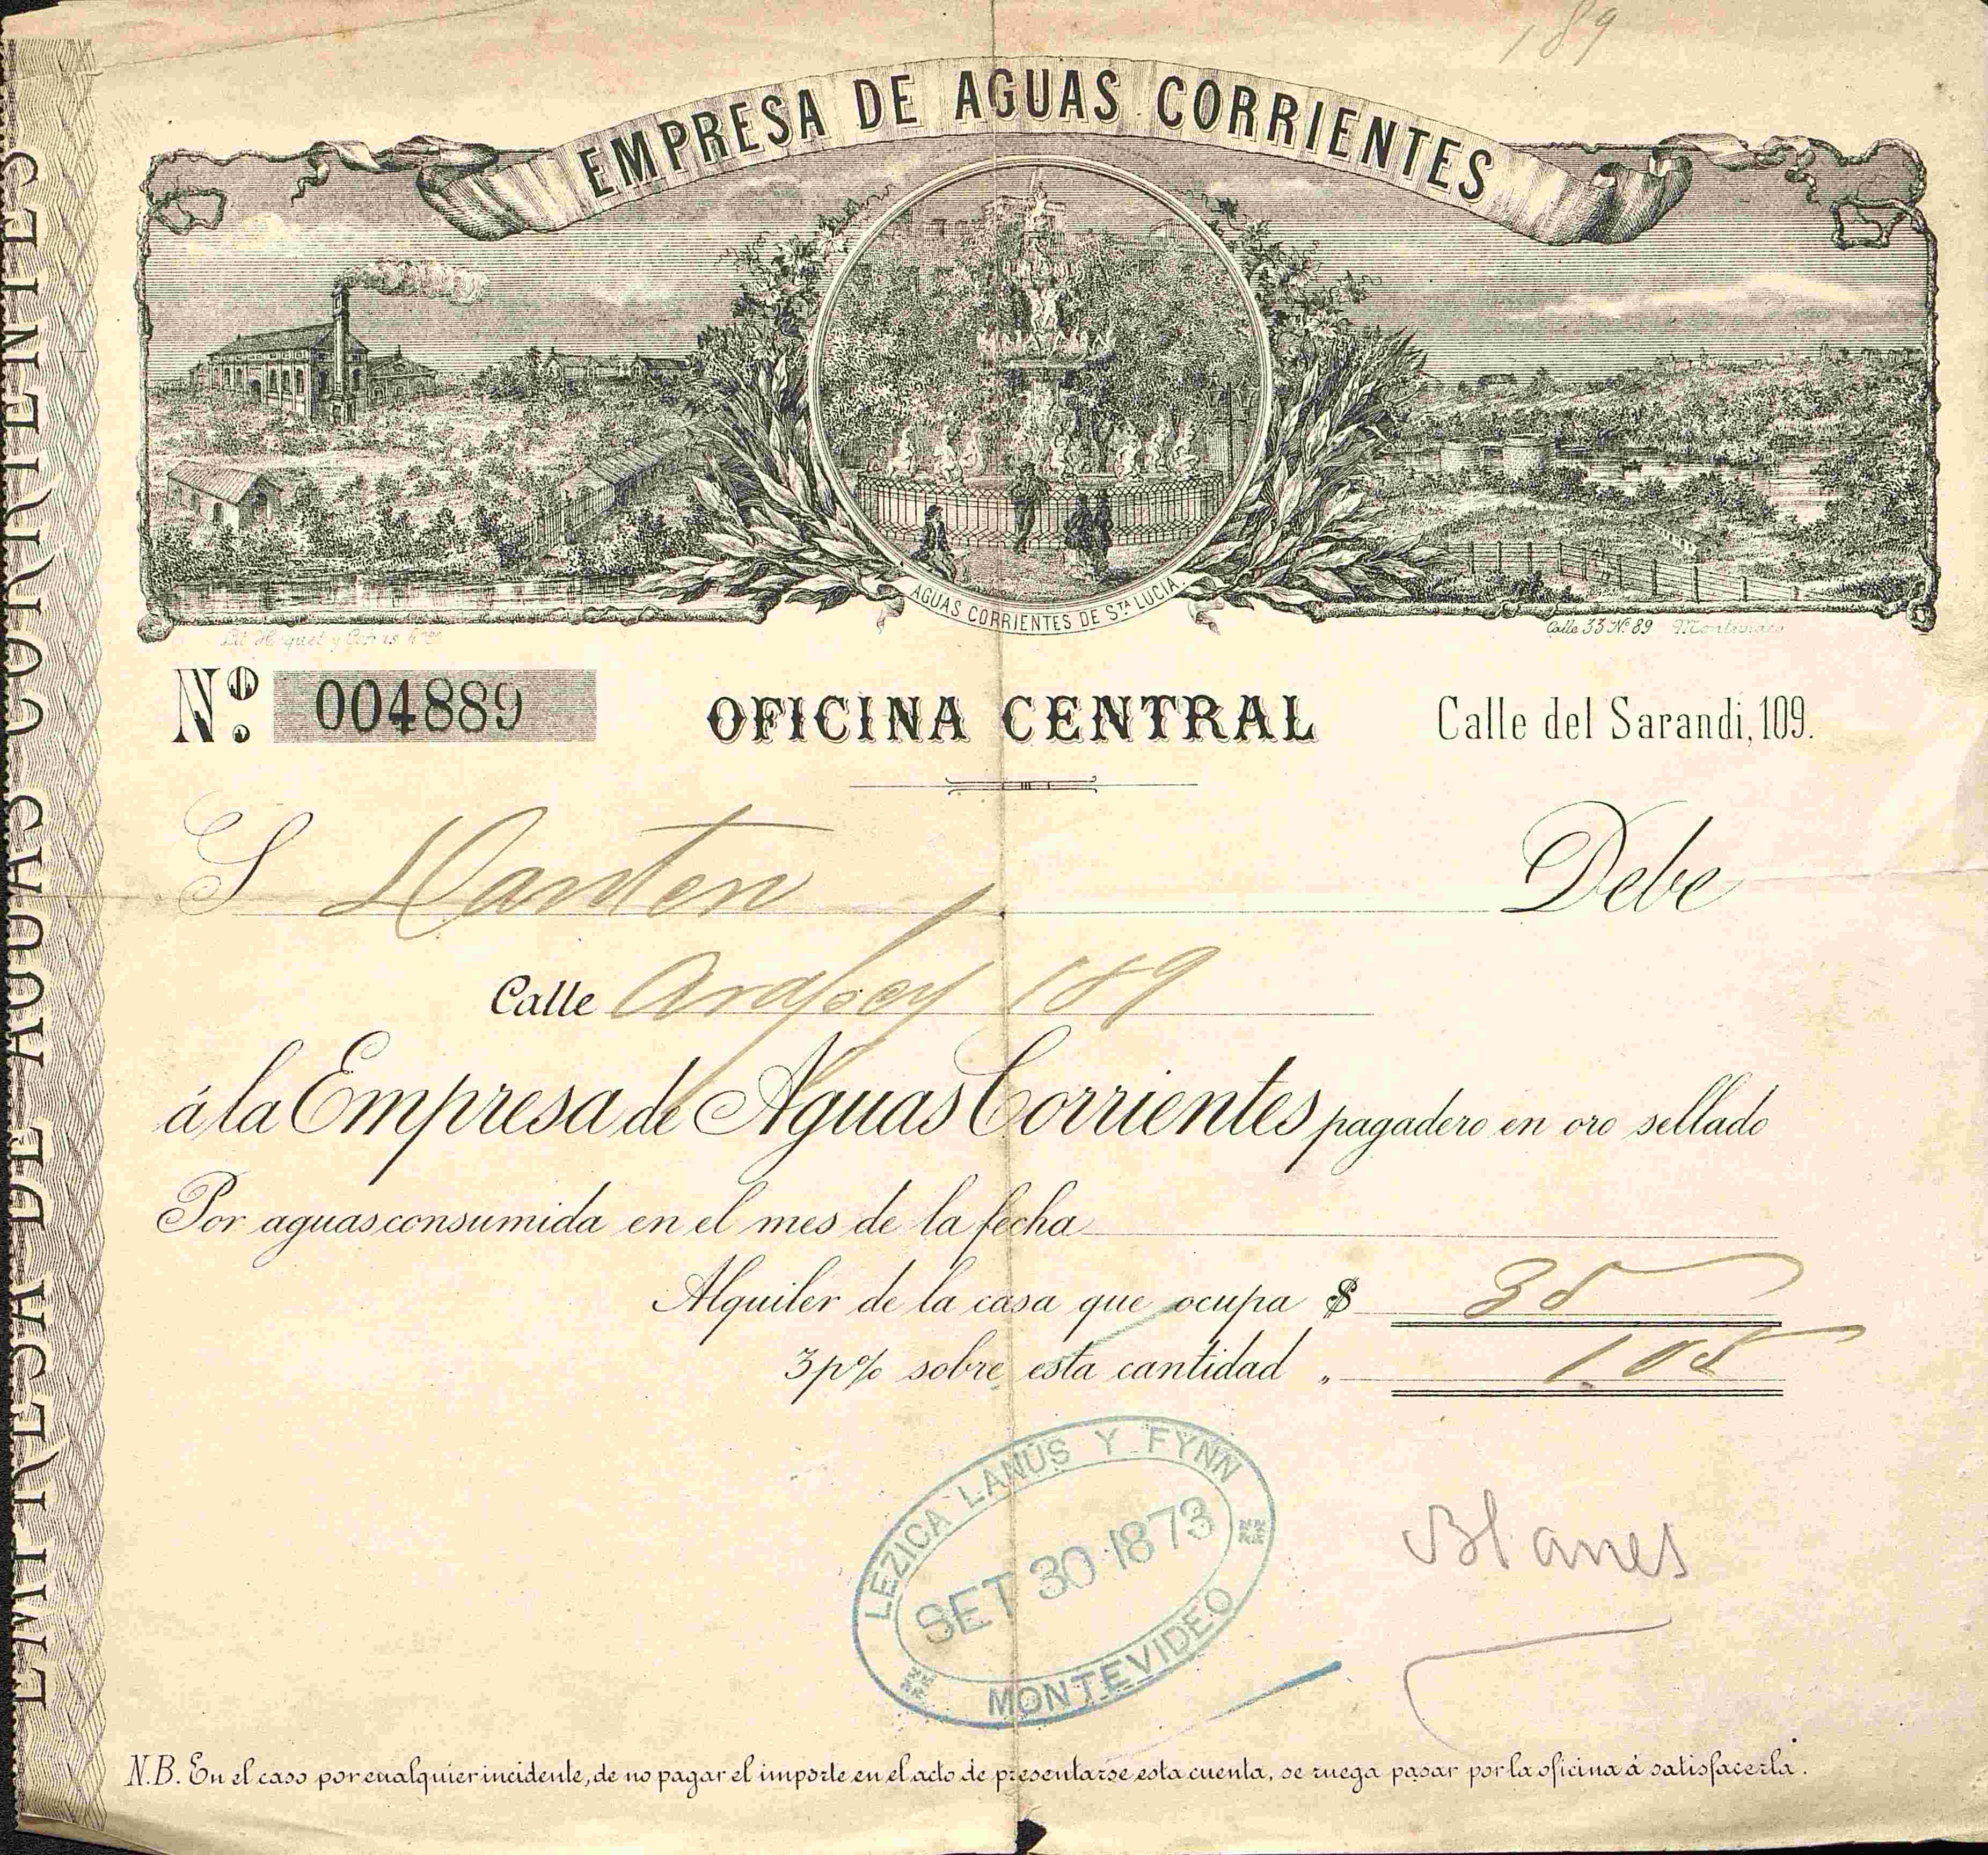 189
EMPRESA DE AGUAS CORRIENTES
AGUAS CORRIENTES DE STA LUCIA
Calle 33 Nº 89 Montevideo
Nº 004889 OFICINA CENTRAL Calle del Sarandi, 109.
S Debe
Calle 189
á la Empresa de Aguas Corrientes pagadero en oro sellado
Por aguas consumida en el mes de la fecha
Alquiler de la casa que ocupa $ 35
3 p% sobre esta cantidad „ 1.05
LEZICA LANUS Y FYNN
SET 30 1873
MONTEVIDEO
Blanes
N.B. En el caso por cualquier incidente, de no pagar el importe en el acto de presentarse esta cuenta, se ruega pasar por la oficina á satisfacerla.
EMPRESA DE AGUAS CORRIENTES